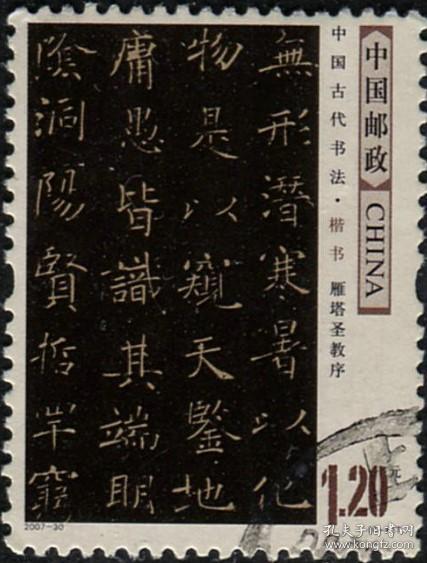 中国邮政 CHINA
中国古代书法·楷书 雁塔圣教序
無形潛寒暑以化
物是以窺天鑒地
庸愚皆識其端眀
陰洞陽賢哲罕窮
1.20元
2007-30
孔夫子旧书网